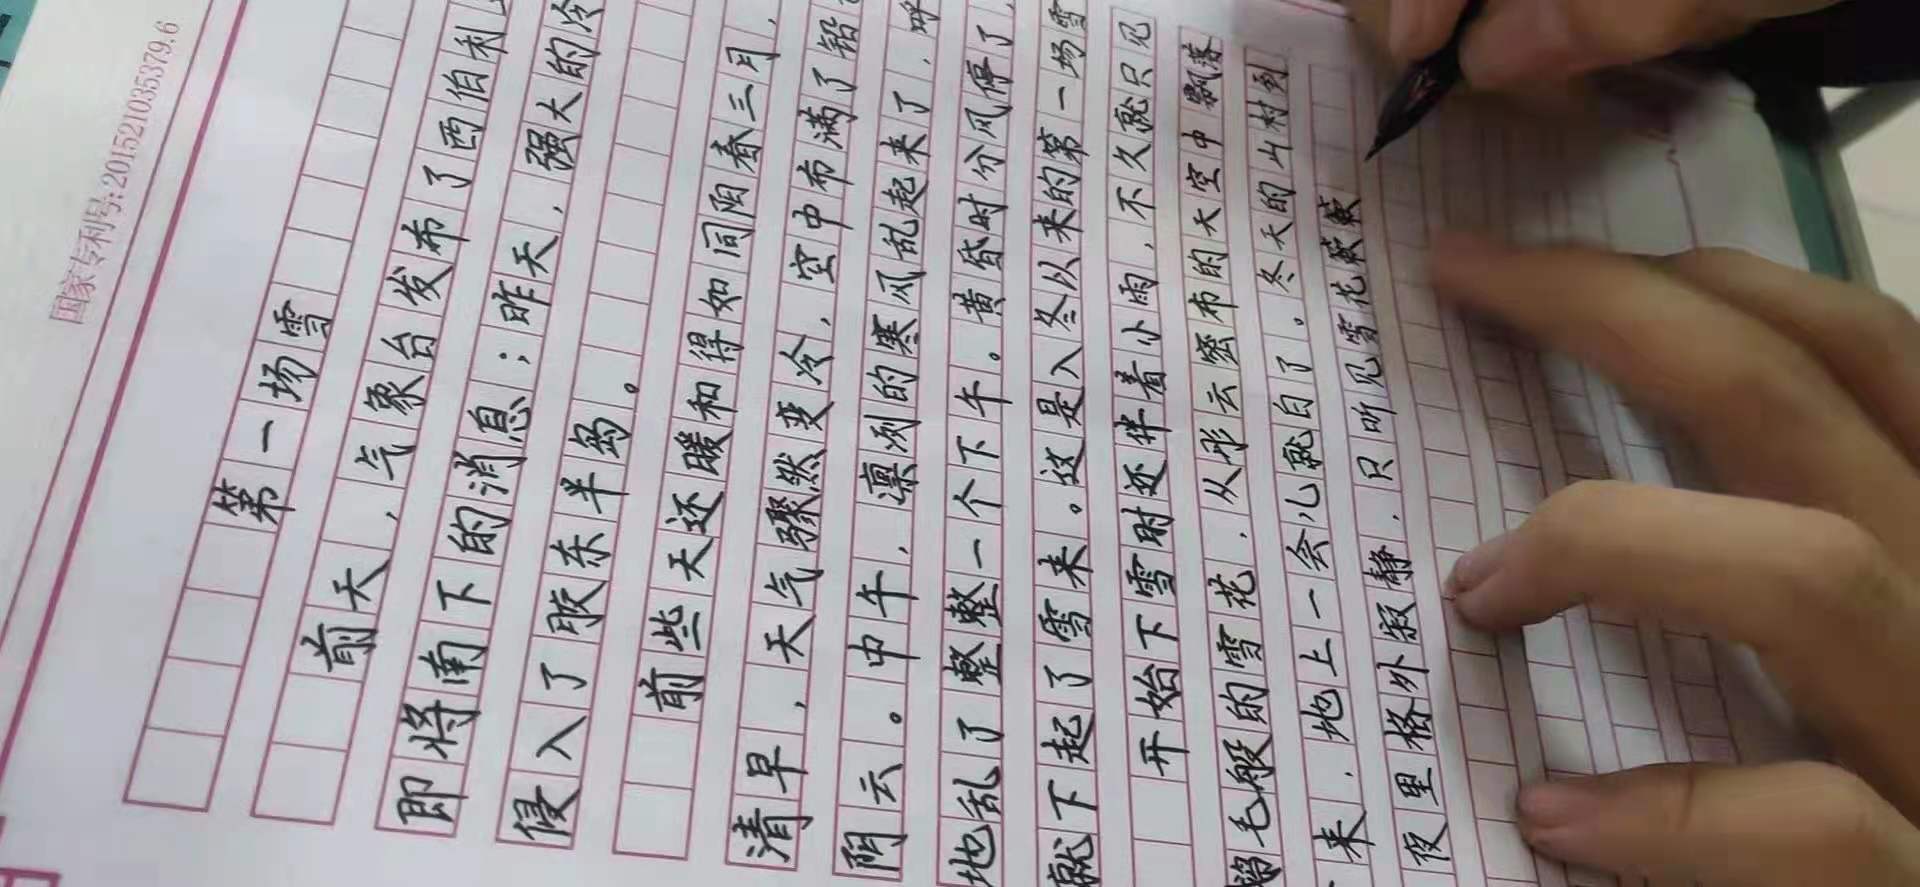 国家专利号:201521035379.6
第一场雪
前天，气象台发布了西伯利
即将南下的消息；昨天，强大的冷
侵入了胶东半岛。
前些天还暖和得如同阳春三月，
清早，天气骤然变冷，空中布满了铅
阴云。中午，凛冽的寒风乱起来了，呼
地乱了整整一个下午。黄昏时分风停了，
就下起了雪来。这是入冬以来的第一场雪
开始下雪时还伴着小雨，不久就只见
毛般的雪花，从彤云密布的天空中飘落
来，地上一会儿就白了。冬天的山村到
夜里格外寂静，只听见雪花簌簌